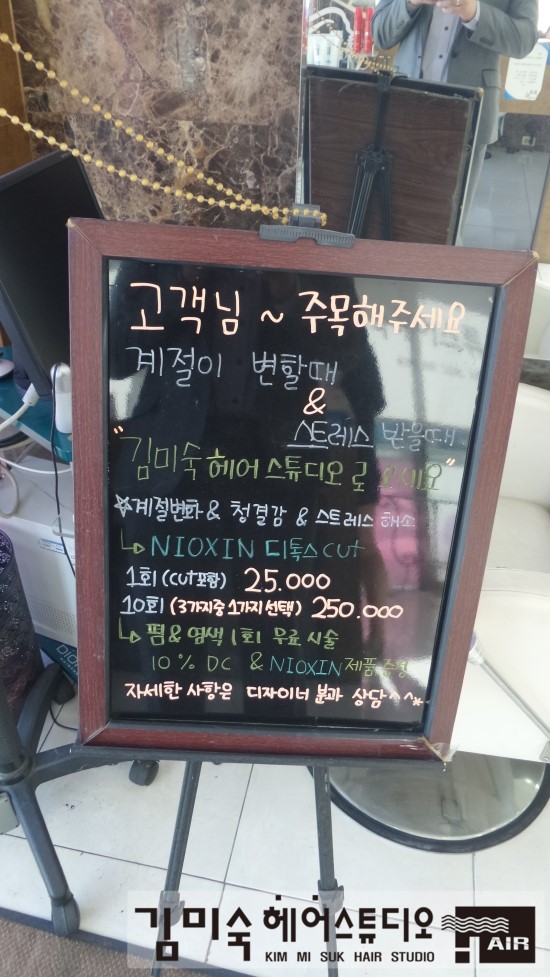 고객님 ~ 주목해주세요
계절이 변할때
&
스트레스 받을때
"김미숙 헤어스튜디오로 오세요"
☆계절변화 & 청결감 & 스트레스 해소
↳ NIOXIN 디톡스 cut
1회 (cut포함) 25.000
10회 (3가지중 1가지 선택) 250.000
↳ 펌 & 염색 1회 무료 시술
10% DC & NIOXIN 제품 증정
자세한 사항은 디자이너 분과 상담^^*
김미숙 헤어스튜디오
KIM MI SUK HAIR STUDIO
AIR